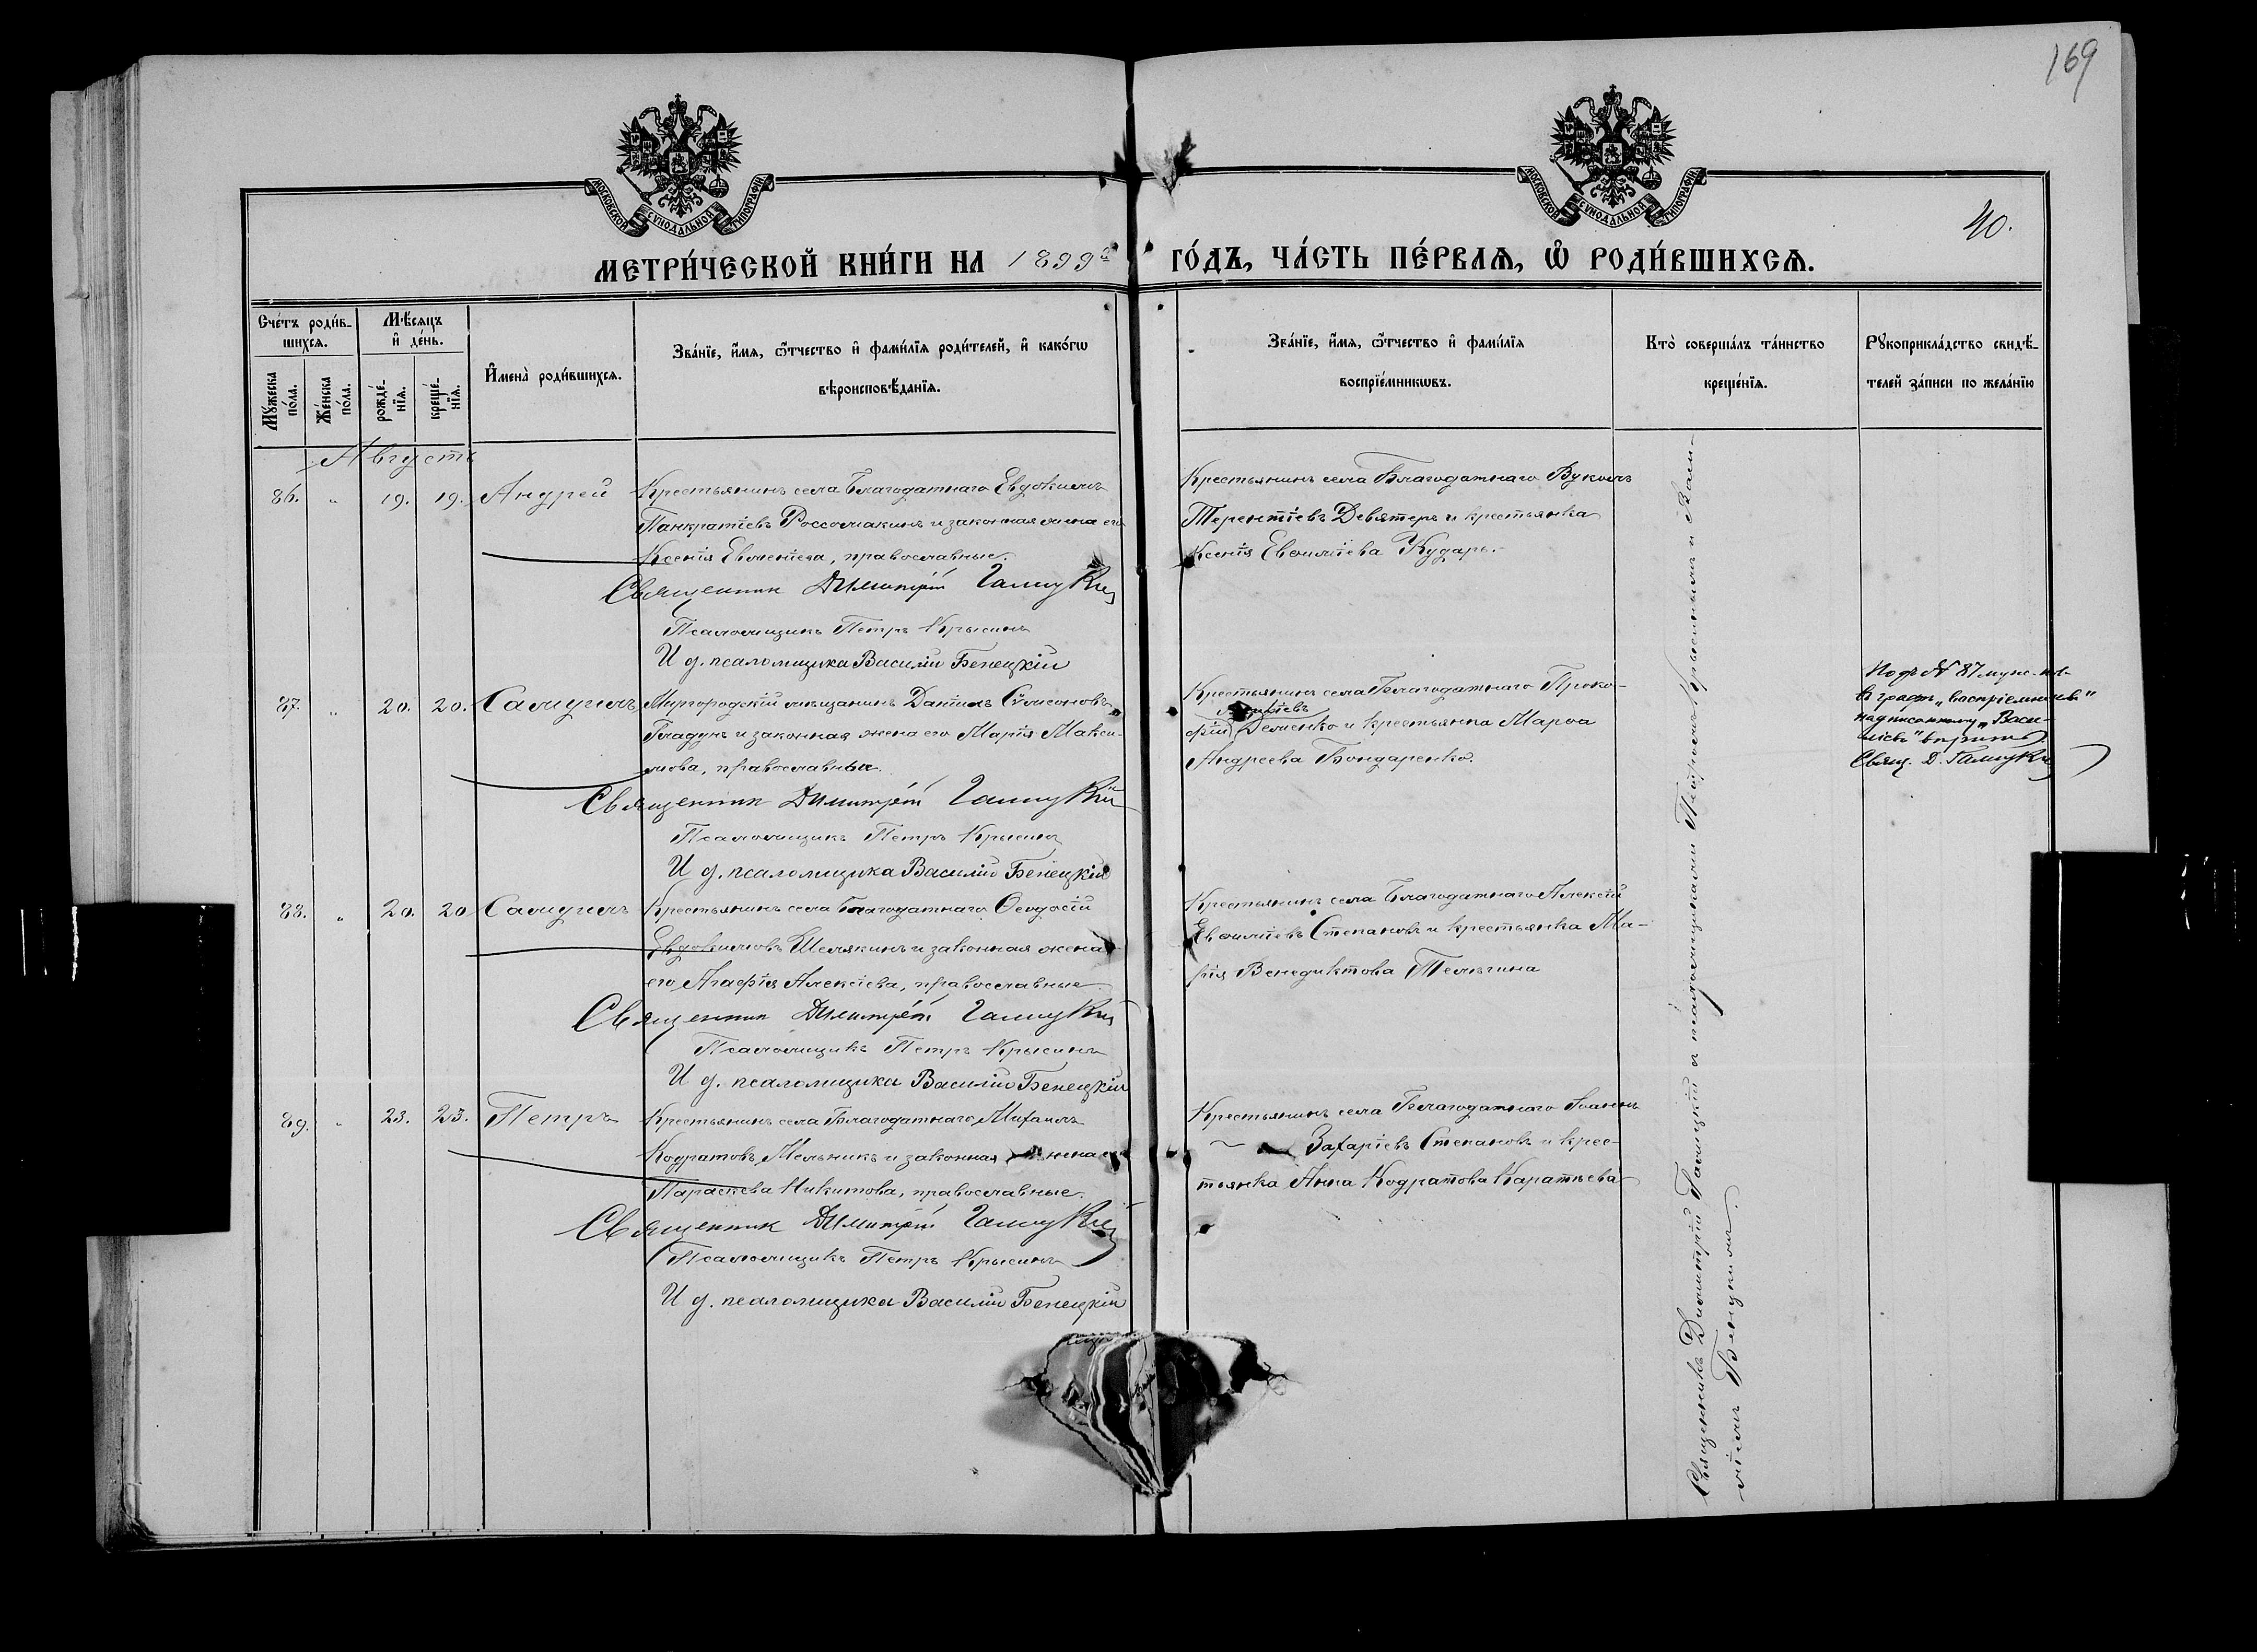 169
МОСКОВСКОЙ СѴНОДАЛЬНОЙ ТИПОГРАФІИ
МОСКОВСКОЙ СѴНОДАЛЬНОЙ ТИПОГРАФІИ
40.
МЕТРИ́ЧЕСКОЙ КНИ́ГИ НА 1899й ГО́ДЪ, ЧА́СТЬ ПЕ́РВАѦ, Ѡ҆ РОДИ́ВШИХСѦ.
Сче́тъ роди́в-
шихсѧ.
Мꙋ́жеска по́ла.
Же́нска по́ла.
Мѣ́сѧцъ
и҆ де́нь.
рожде́-
нїѧ.
креще́-
нїѧ.
И҆мена̀ роди́вшихсѧ.
Зва́нїе, и҆́мѧ, ѻ҆́тчество и҆ фами́лїѧ роди́телей, и҆ како́гѡ
вѣроисповѣ́данїѧ.
Зва́нїе, и҆́мѧ, ѻ҆́тчество и҆ фами́лїѧ
воспрїе́мникѡвъ.
Кто̀ соверша́лъ та́инство
креще́нїѧ.
Рꙋкоприкла́дство свидѣ́-
телей за́писи по жела́нїю
Августъ
86. " 19. 19. Андрей
Крестьянинъ села Благодатнаго Евдокимъ
Панкратіевъ Россомакинъ и законная жена его
Ксенія Евменіева, православные.
Священник Димитрій Галицкій
Псаломщикъ Петръ Крысинъ
И д. псаломщика Василій Бенецкій
Крестьянинъ села Благодатнаго Вуколъ
Терентіевъ Девятеръ и крестьянка
Ксенія Евѳиміева Кударь.
87. " 20. 20. Самуилъ
Миргородскій мѣщанинъ Даніилъ Самсоновъ
Гладунъ и законная жена его Марія Макси-
мова, православные.
Священник Димитрій Галицкій
Псаломщикъ Петръ Крысинъ
И д. псаломщика Василій Бенецкій
Крестьянинъ села Благодатнаго Проко-
фій Василіевъ Демченко и крестьянка Марѳа
Андреева Бондаренко.
Подъ № 87 муж. пол.
въ графѣ "воспріемниковъ"
надписанному "Васи-
ліевъ" вѣрить.
Свящ. Д. Галицкій
88. " 20. 20 Самуилъ
Крестьянинъ села Благодатнаго Ѳеодосій
Евдокимовъ Шемякинъ и законная жена
его Агафія Алексіева, православные.
Священник Димитрій Галицкій
Псаломщикъ Петръ Крысинъ
И д. псаломщика Василій Бенецкій
Крестьянинъ села Благодатнаго Алексій
Евѳиміевъ Степановъ и крестьянка Ма-
рія Венедиктова Телегина
89. " 23. 23. Петръ
Крестьянинъ села Благодатнаго Михаилъ
Кодратовъ Мельникъ и законная жена его
Параскева Никитова, православные.
Священник Димитрій Галицкій
Псаломщикъ Петръ Крысинъ
И д. псаломщика Василій Бенецкій
Крестьянинъ села Благодатнаго Іоаннъ
Захаріевъ Степановъ и крес-
тьянка Анна Кодратова Каратѣева
Священникъ Димитрій Галицкій съ псаломщиками Петромъ Крысинымъ и Васи-
ліемъ Бенецкимъ.